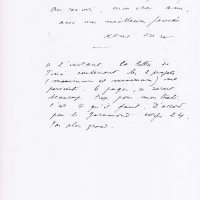 Au revoir, mon cher ami,
avec mes meilleures pensées
René
A l'instant la lettre de
Tina contenant les 2 projets
(maximum et minimum) me
parvient. 6 pages, ce serait
beaucoup trop pour mon texte,
c'est 4 qu'il faut. D'accord
pour le Garamond corps 24
plus grand.